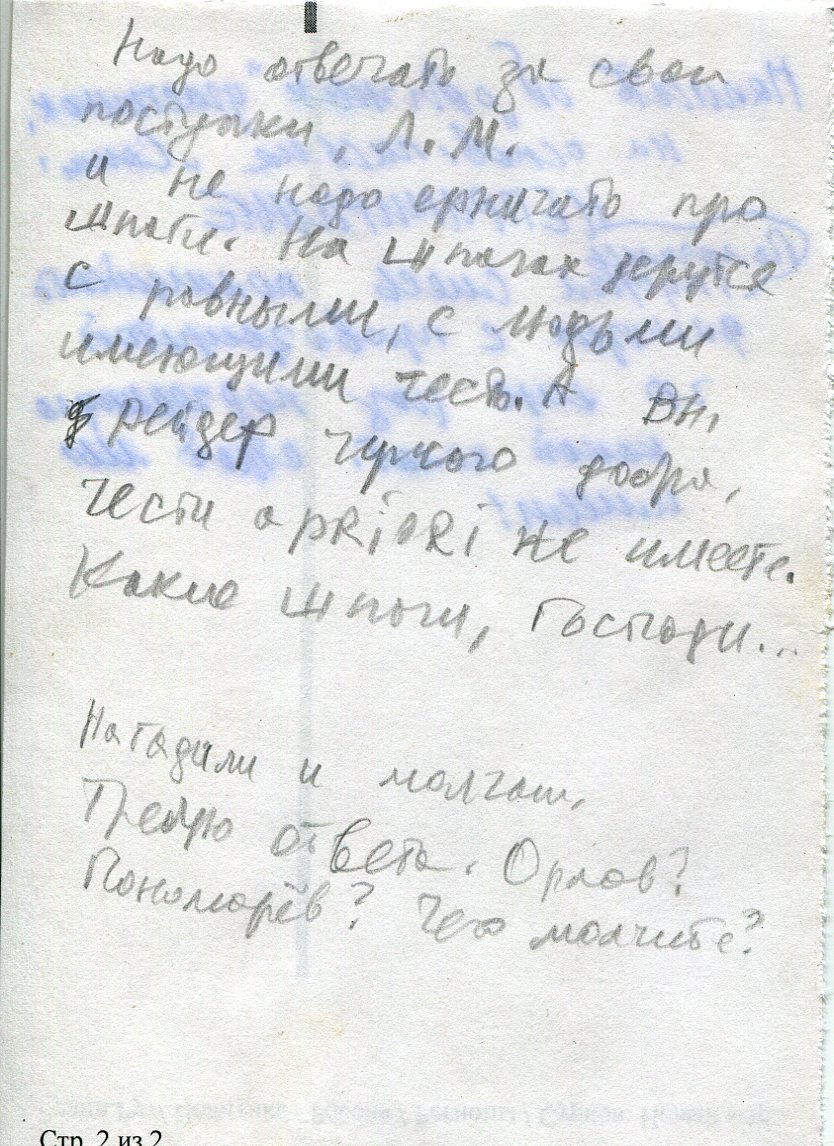 Надо отвечать за свои
поступки, Л.М.
и не надо ерничать про
шпаги. На шпагах дерутся
с равными, с людьми
имеющими честь. А Вы,
рейдер чужого добра,
чести apriori не имеете.
Какие шпаги, Господи...
Нагадили и молчат.
Требую ответа. Орлов?
Пономарёв? Чего молчите?
Стр. 2 из 2